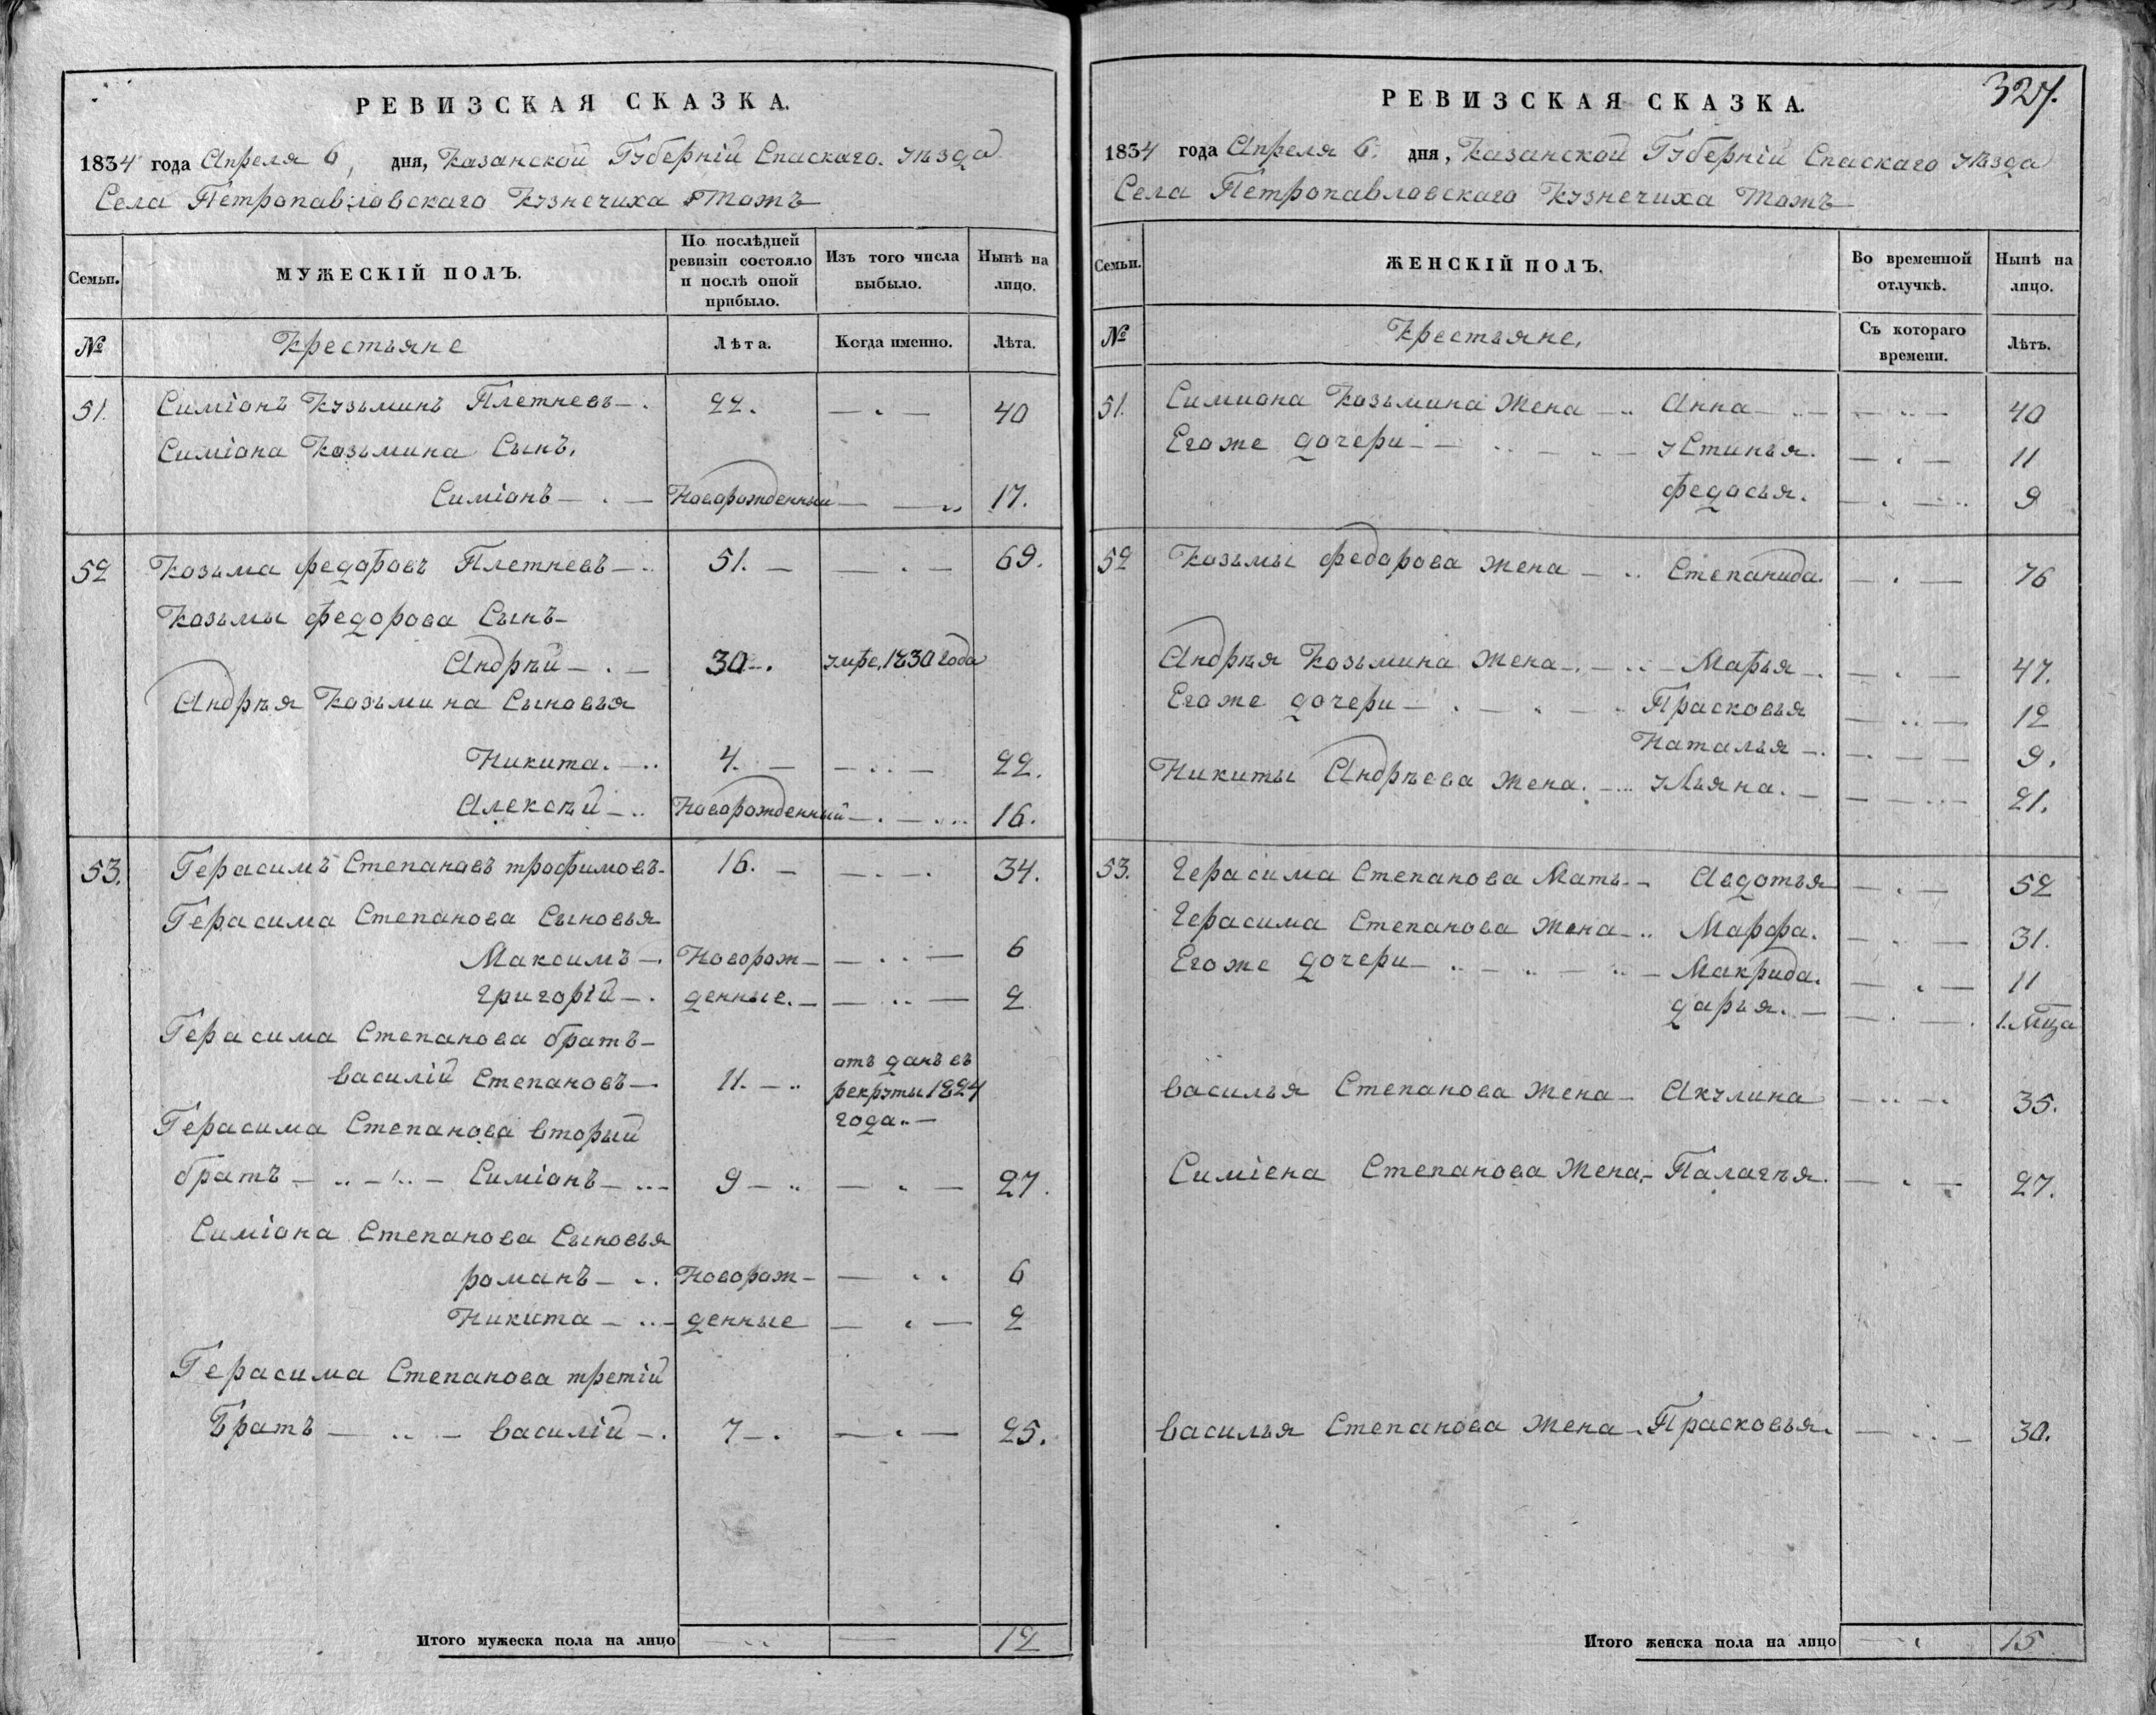 РЕВИЗСКАЯ СКАЗКА.
1834 года Апреля 6, дня, Казанской Губерніи Спаскаго уѣзда
Села Петропавловскаго Кузнечиха тожъ
Семьи.
МУЖЕСКІЙ ПОЛЪ.
По послѣдней
ревизіи состояло
и послѣ оной
прибыло.
Изъ того числа
выбыло.
Нынѣ на
лицо.
№
Крестьяне
Лѣта.
Когда именно.
Лѣта.
51. Симіонъ Кузьминъ Плетневъ 22. 40
Симіона Козьмина Сынъ,
Симіонъ Новорожденный 17.
52 Козьма федоровъ Плетневъ 51. 69.
Козьмы федорова Сынъ
Андрѣй 30. умре, 1830 года
Андрѣя Козьмина Сыновья
Никита. 4. 22.
Алексѣй Новорожденный 16.
53. Герасимъ Степановъ трофимовъ 16. 34.
Герасима Степанова Сыновья
Максимъ Новорож- 6
григорій денные. 2
Герасима Степанова братъ
василій Степановъ 11. отъ данъ въ
рекруты 1824
года.
Герасима Степанова вторый
братъ Симіонъ 9 27.
Симіона Степанова Сыновья
романъ Новорож- 6
Никита денные 2
Герасима Степанова третій
братъ василій 7 25.
Итого мужеска пола на лицо 12
327.
РЕВИЗСКАЯ СКАЗКА.
1834 года Апреля 6. дня, Казанской Губерніи Спаскаго уѣзда
Села Петропавловскаго Кузнечиха тожъ
Семьи.
ЖЕНСКІЙ ПОЛЪ.
Во временной
отлучкѣ.
Нынѣ на
лицо.
№
Крестьяне,
Съ котораго
времени.
Лѣтъ.
51. Симиона Козьмина жена Анна 40
Егоже дочери устинья. 11
федосья. 9
52 Козьмы федорова жена Степанида. 76
Андрѣя Козьмина жена Марья 47.
Егоже дочери Прасковья 12
Наталья 9.
Никиты Андрѣева жена. ульяна. 21.
53. Герасима Степанова Мать Авдотья 52
Герасима Степанова жена Марфа. 31.
Егоже дочери Макрида. 11
дарья. 1. Мца
василья Степанова жена Акулина 35.
Симіена Степанова жена, Палагѣя. 27.
василья Степанова жена Прасковья. 30.
Итого женска пола на лицо 15